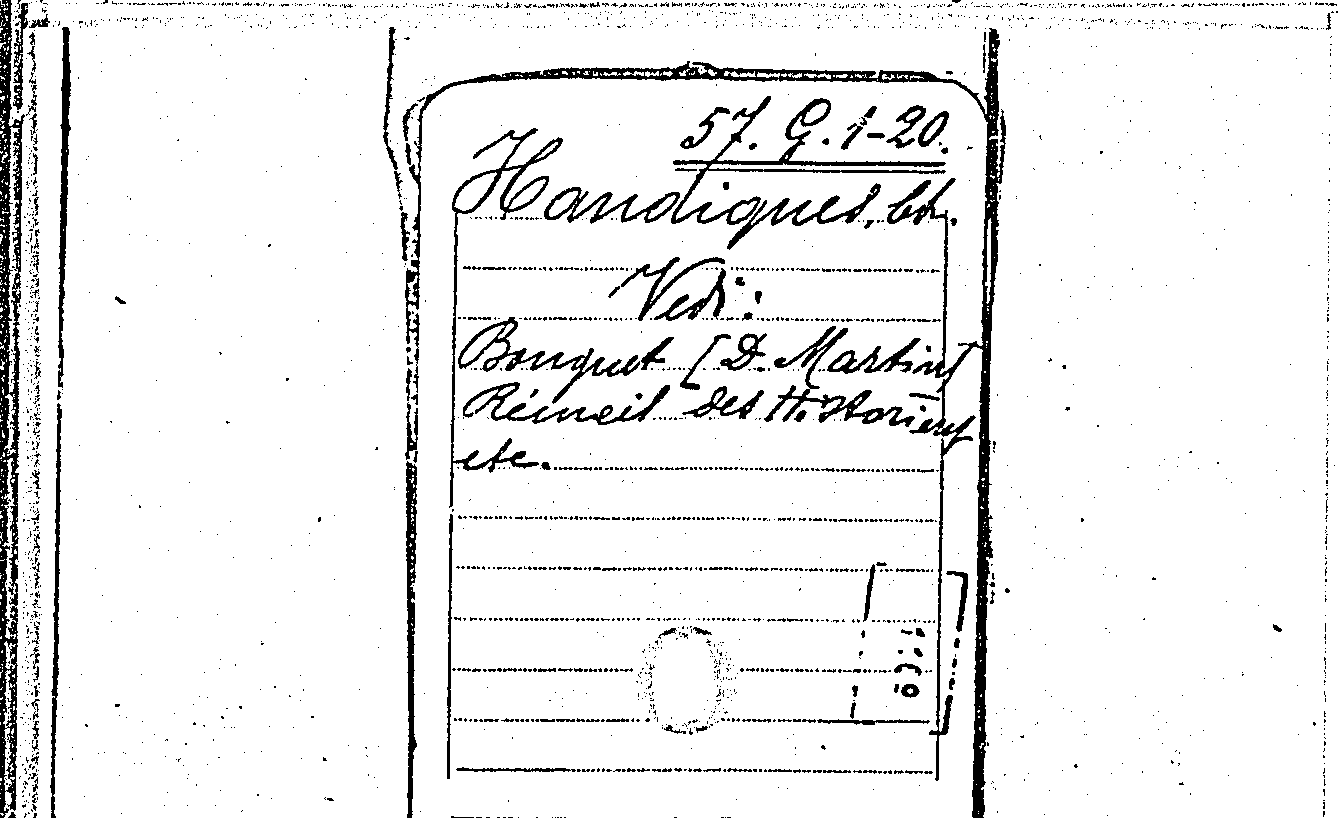 57. G. 1-20.
Handiques, bt.
Vedi:
Bouquet [D. Martin]
Récueil des Historiens
etc.